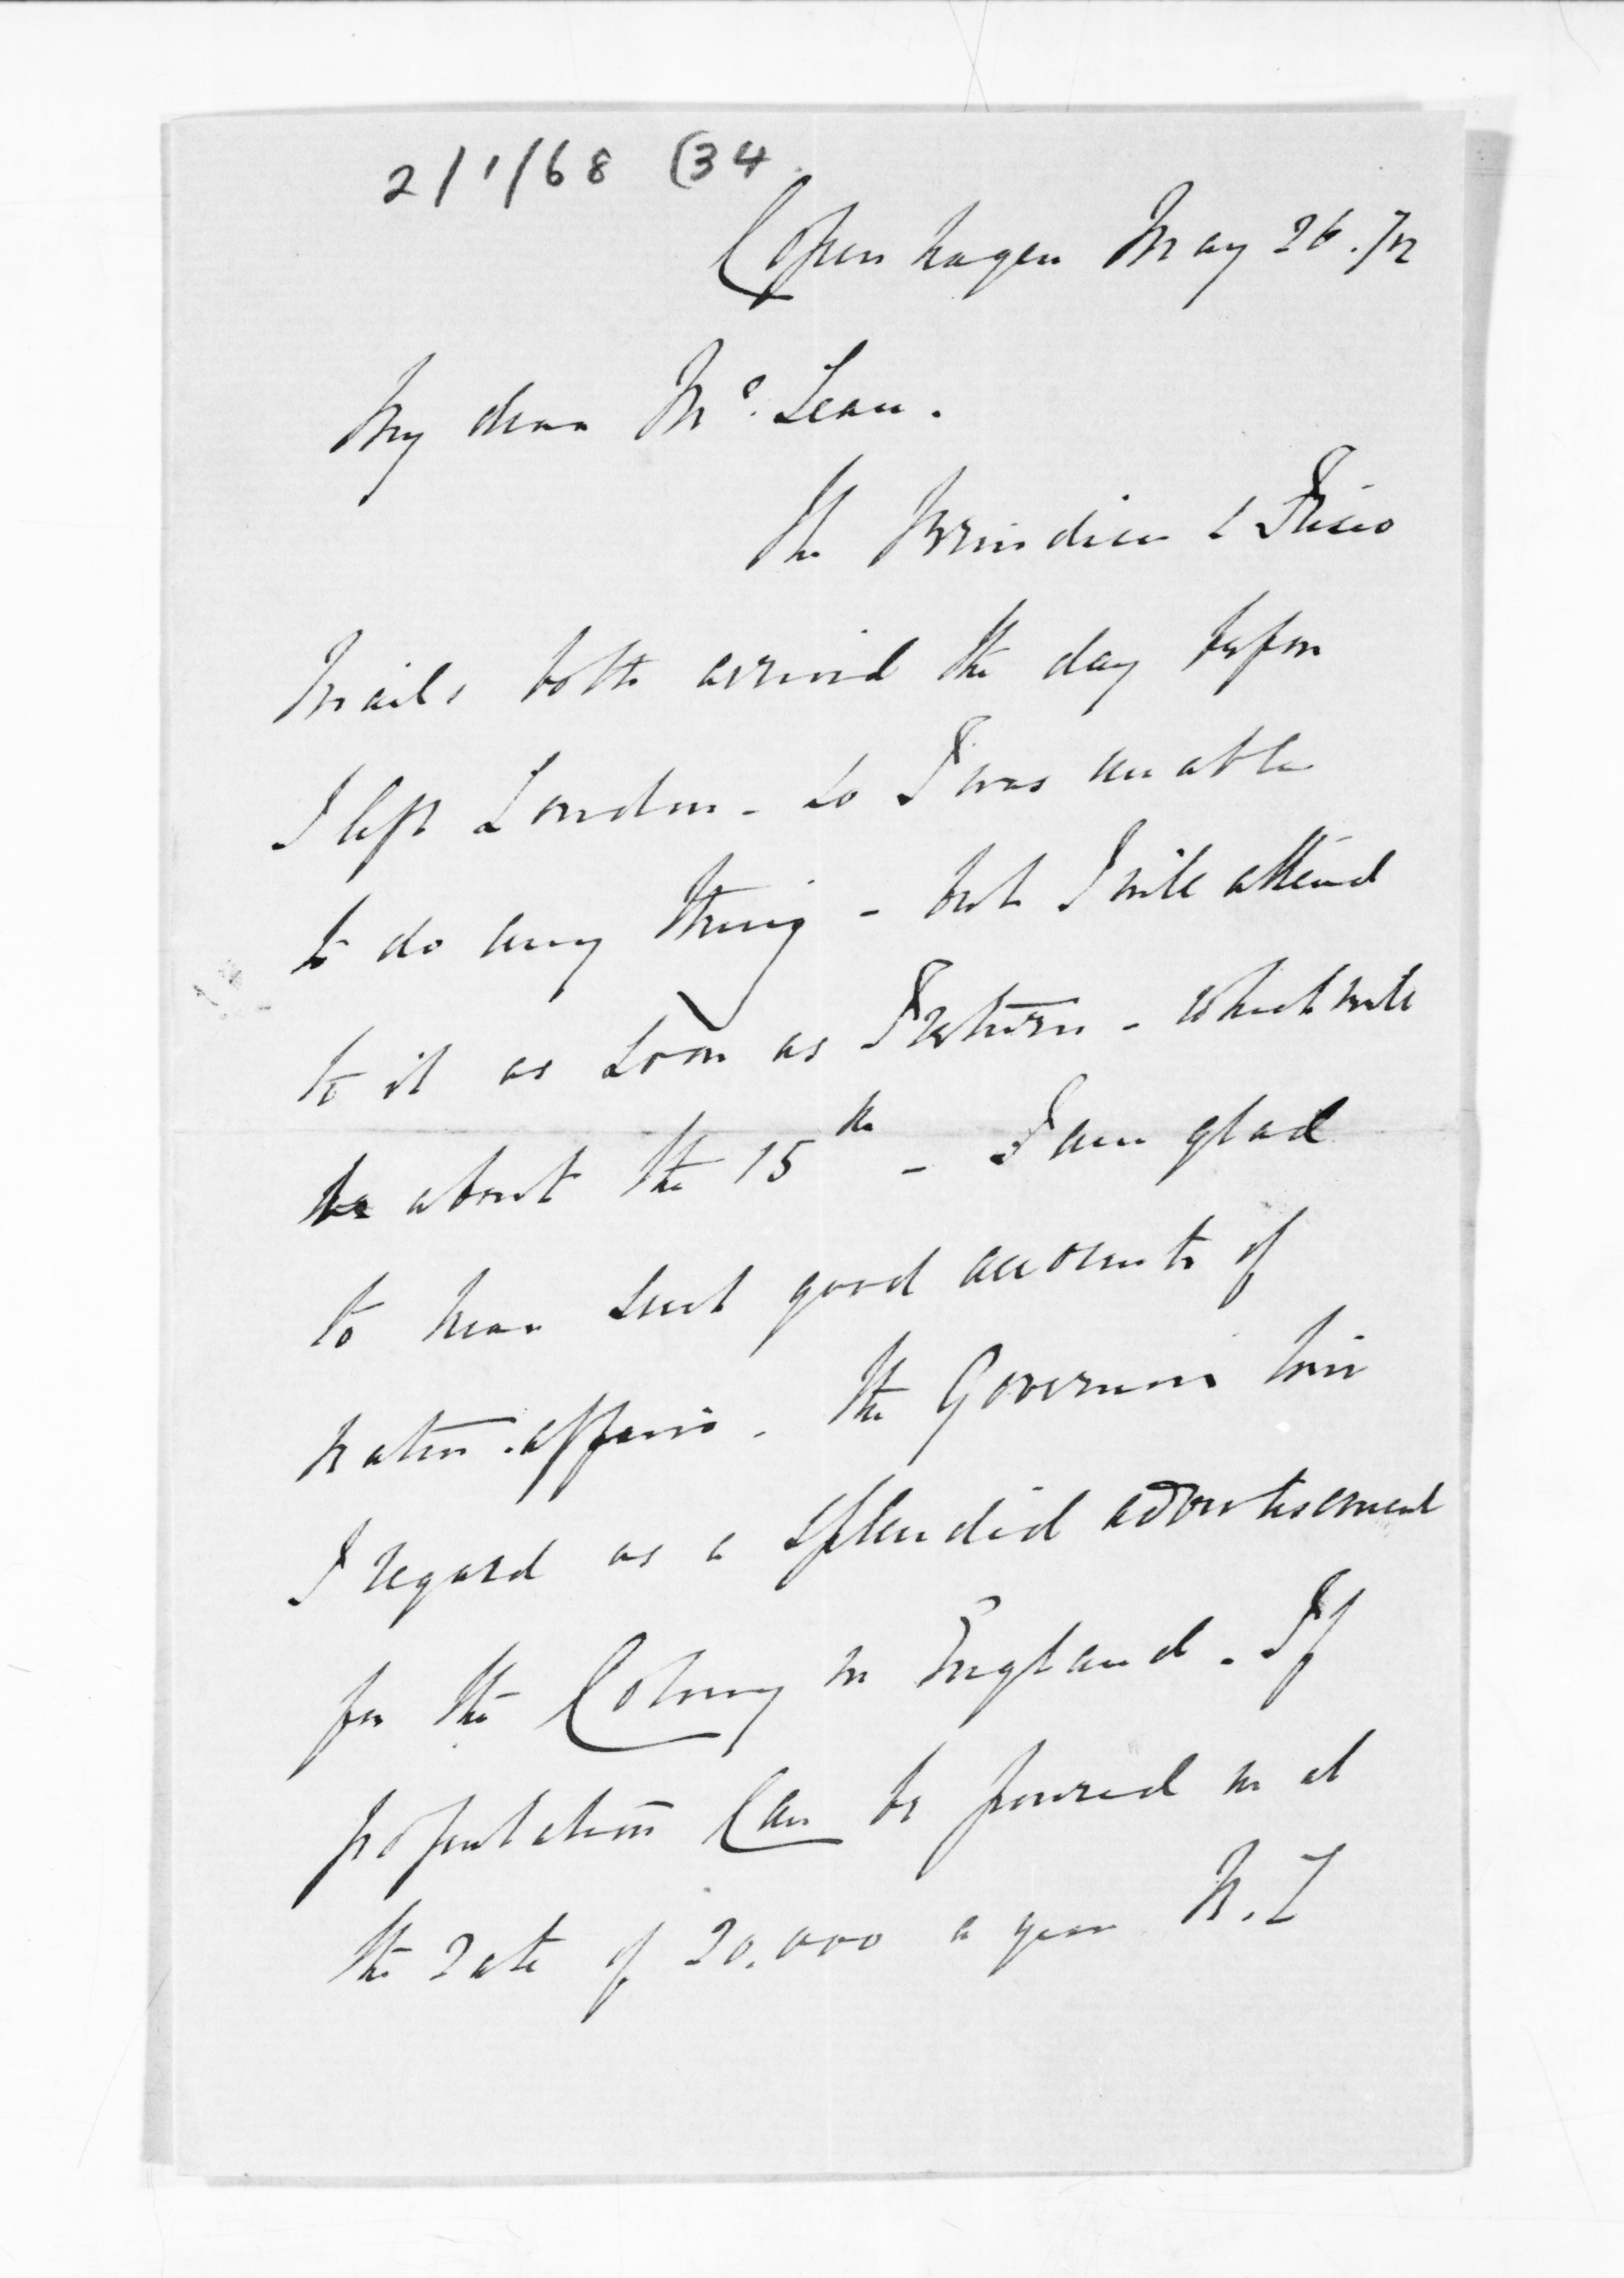 2/1/68 (34
Copenhagen May 26. /72
My dear McLean.
The Brindisi & Frisco
Mails both arrived the day before
I left London - so I was unable
to do any thing - but I will attend
to it as soon as I return - which will
be about the 15th - I am glad
to hear such good accounts of
native affairs. The Governors
I regard as a splendid advertisement
for the Colony in England. If
population Can be poured in at
the rate of 20,000 a year N.Z